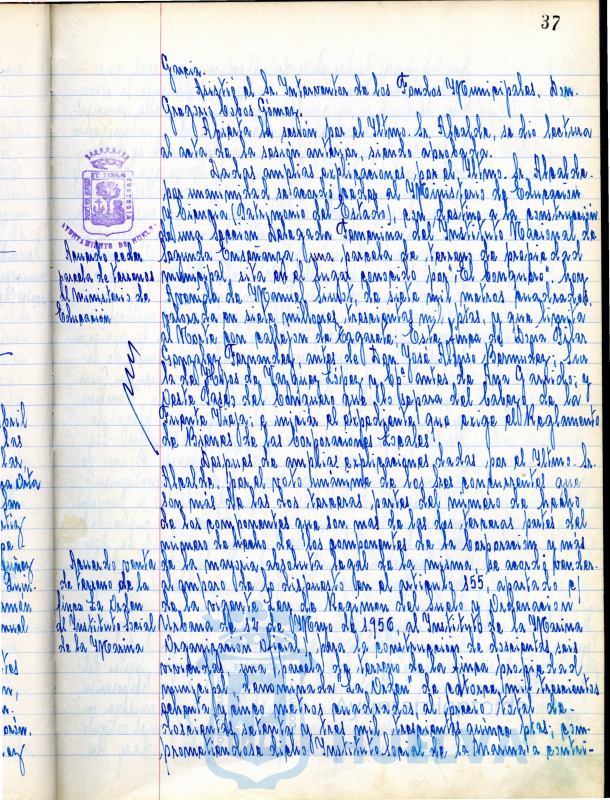 37
García.
Asistió el Sr. Interventor de los Fondos Municipales, Don
Gregorio Cobos Gómez.
Abierta la sesión por el Iltmo. Sr. Alcalde, se dio lectura
al acta de la sesión anterior, siendo aprobada.
Dadas amplias explicaciones por el Iltmo. Sr. Alcalde,
por unanimidad se acordó ceder al Ministerio de Educación
y Ciencia (Patrimonio del Estado), con destino a la construcción
de una Sección Delegada Femenina del Instituto Nacional de
Segunda Enseñanza, una parcela de terreno de propiedad
municipal, sita en el lugar conocido por "El Conquero" hoy
Avenida de Manuel Siurot, de siete mil metros cuadrados,
valorada en siete millones trescientas mil ptas, y que limita
al Norte con callejón de Este, finca de Doña Pilar
González Fernández, antes de Don José Bermúdez; Sur
la de Hijos de Vázquez López y antes de y
Oeste Paseo del Conquero que lo separa del cabezo de la
Fuente Vieja; e iniciar el expediente que exige el Reglamento
de Bienes de las Corporaciones Locales.
Después de amplias explicaciones dadas por el Iltmo. Sr.
Alcalde, por el voto unánime de los tres concurrentes que
son más de las dos terceras partes del número de hecho
de los componentes que son más de las dos terceras partes del
número de hecho de los componentes de la Corporación y más
de la mayoría absoluta legal de la misma, se acordó vender
al amparo de lo dispuesto en el artículo 155, apartado c/
de la vigente Ley de Régimen del Suelo y Ordenación
Urbana de 12 de Mayo de 1956, al Instituto de la Marina
Organización Oficial, para la construcción de doscientas seis
viviendas, una parcela de terreno de la finca propiedad
municipal, denominada "La Orden" de catorce mil trescientos
ochenta y cinco metros cuadrados al precio total de
doscientas setenta y tres mil, trescientas quince ptas; com-
prometiéndose dicho Instituto Social de la Marina a contri-
AYUNTAMIENTO DE HUELVA
Acuerdo ceder
parcela de terrenos
al Ministerio de
Educación
Acuerdo venta
de terreno de la
finca La Orden
al Instituto Social
de la Marina
HUELVA